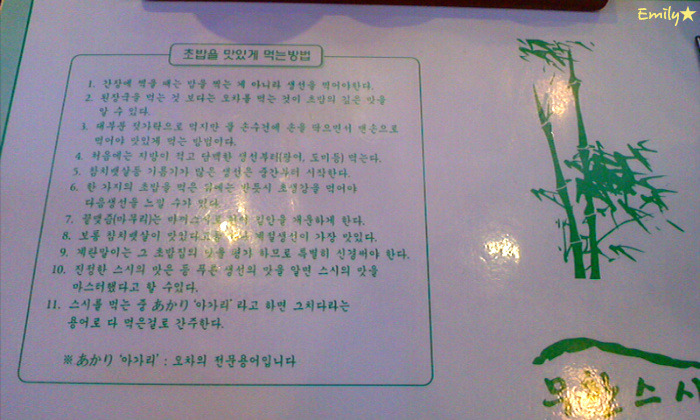 Emily★
초밥을 맛있게 먹는방법
1. 간장에 찍을 때는 밥을 찍는 게 아니라 생선을 찍어야한다.
2. 된장국을 먹는 것 보다는 오차를 먹는 것이 초밥의 깊은 맛을
알 수 있다.
3. 대부분 젓가락으로 먹지만 물 손수건에 손을 닦으면서 맨손으로
먹어야 맛있게 먹는 방법이다.
4. 처음에는 지방이 적고 담백한 생선부터(광어, 도미등) 먹는다.
5. 참치뱃살등 기름기가 많은 생선은 중간부터 시작한다.
6. 한 가지의 초밥을 먹은 뒤에는 반듯시 초생강을 먹어야
다음생선을 느낄 수가 있다.
7. 끝맺음(마무리)는 입안을 개운하게 한다.
8. 보통 참치뱃살이 맛있다고들 제철생선이 가장 맛있다.
9. 계란말이는 그 초밥집의 맛을 평가 하므로 특별히 신경써야 한다.
10. 진정한 스시의 맛은 등 푸른 생선의 맛을 알면 스시의 맛을
마스터했다고 할 수있다.
11. 스시를 먹는 중 あかり '아가리' 라고 하면 그치다라는
용어로 다 먹은걸로 간주한다.
※ あかり '아가리' : 오차의 전문용어입니다
스시